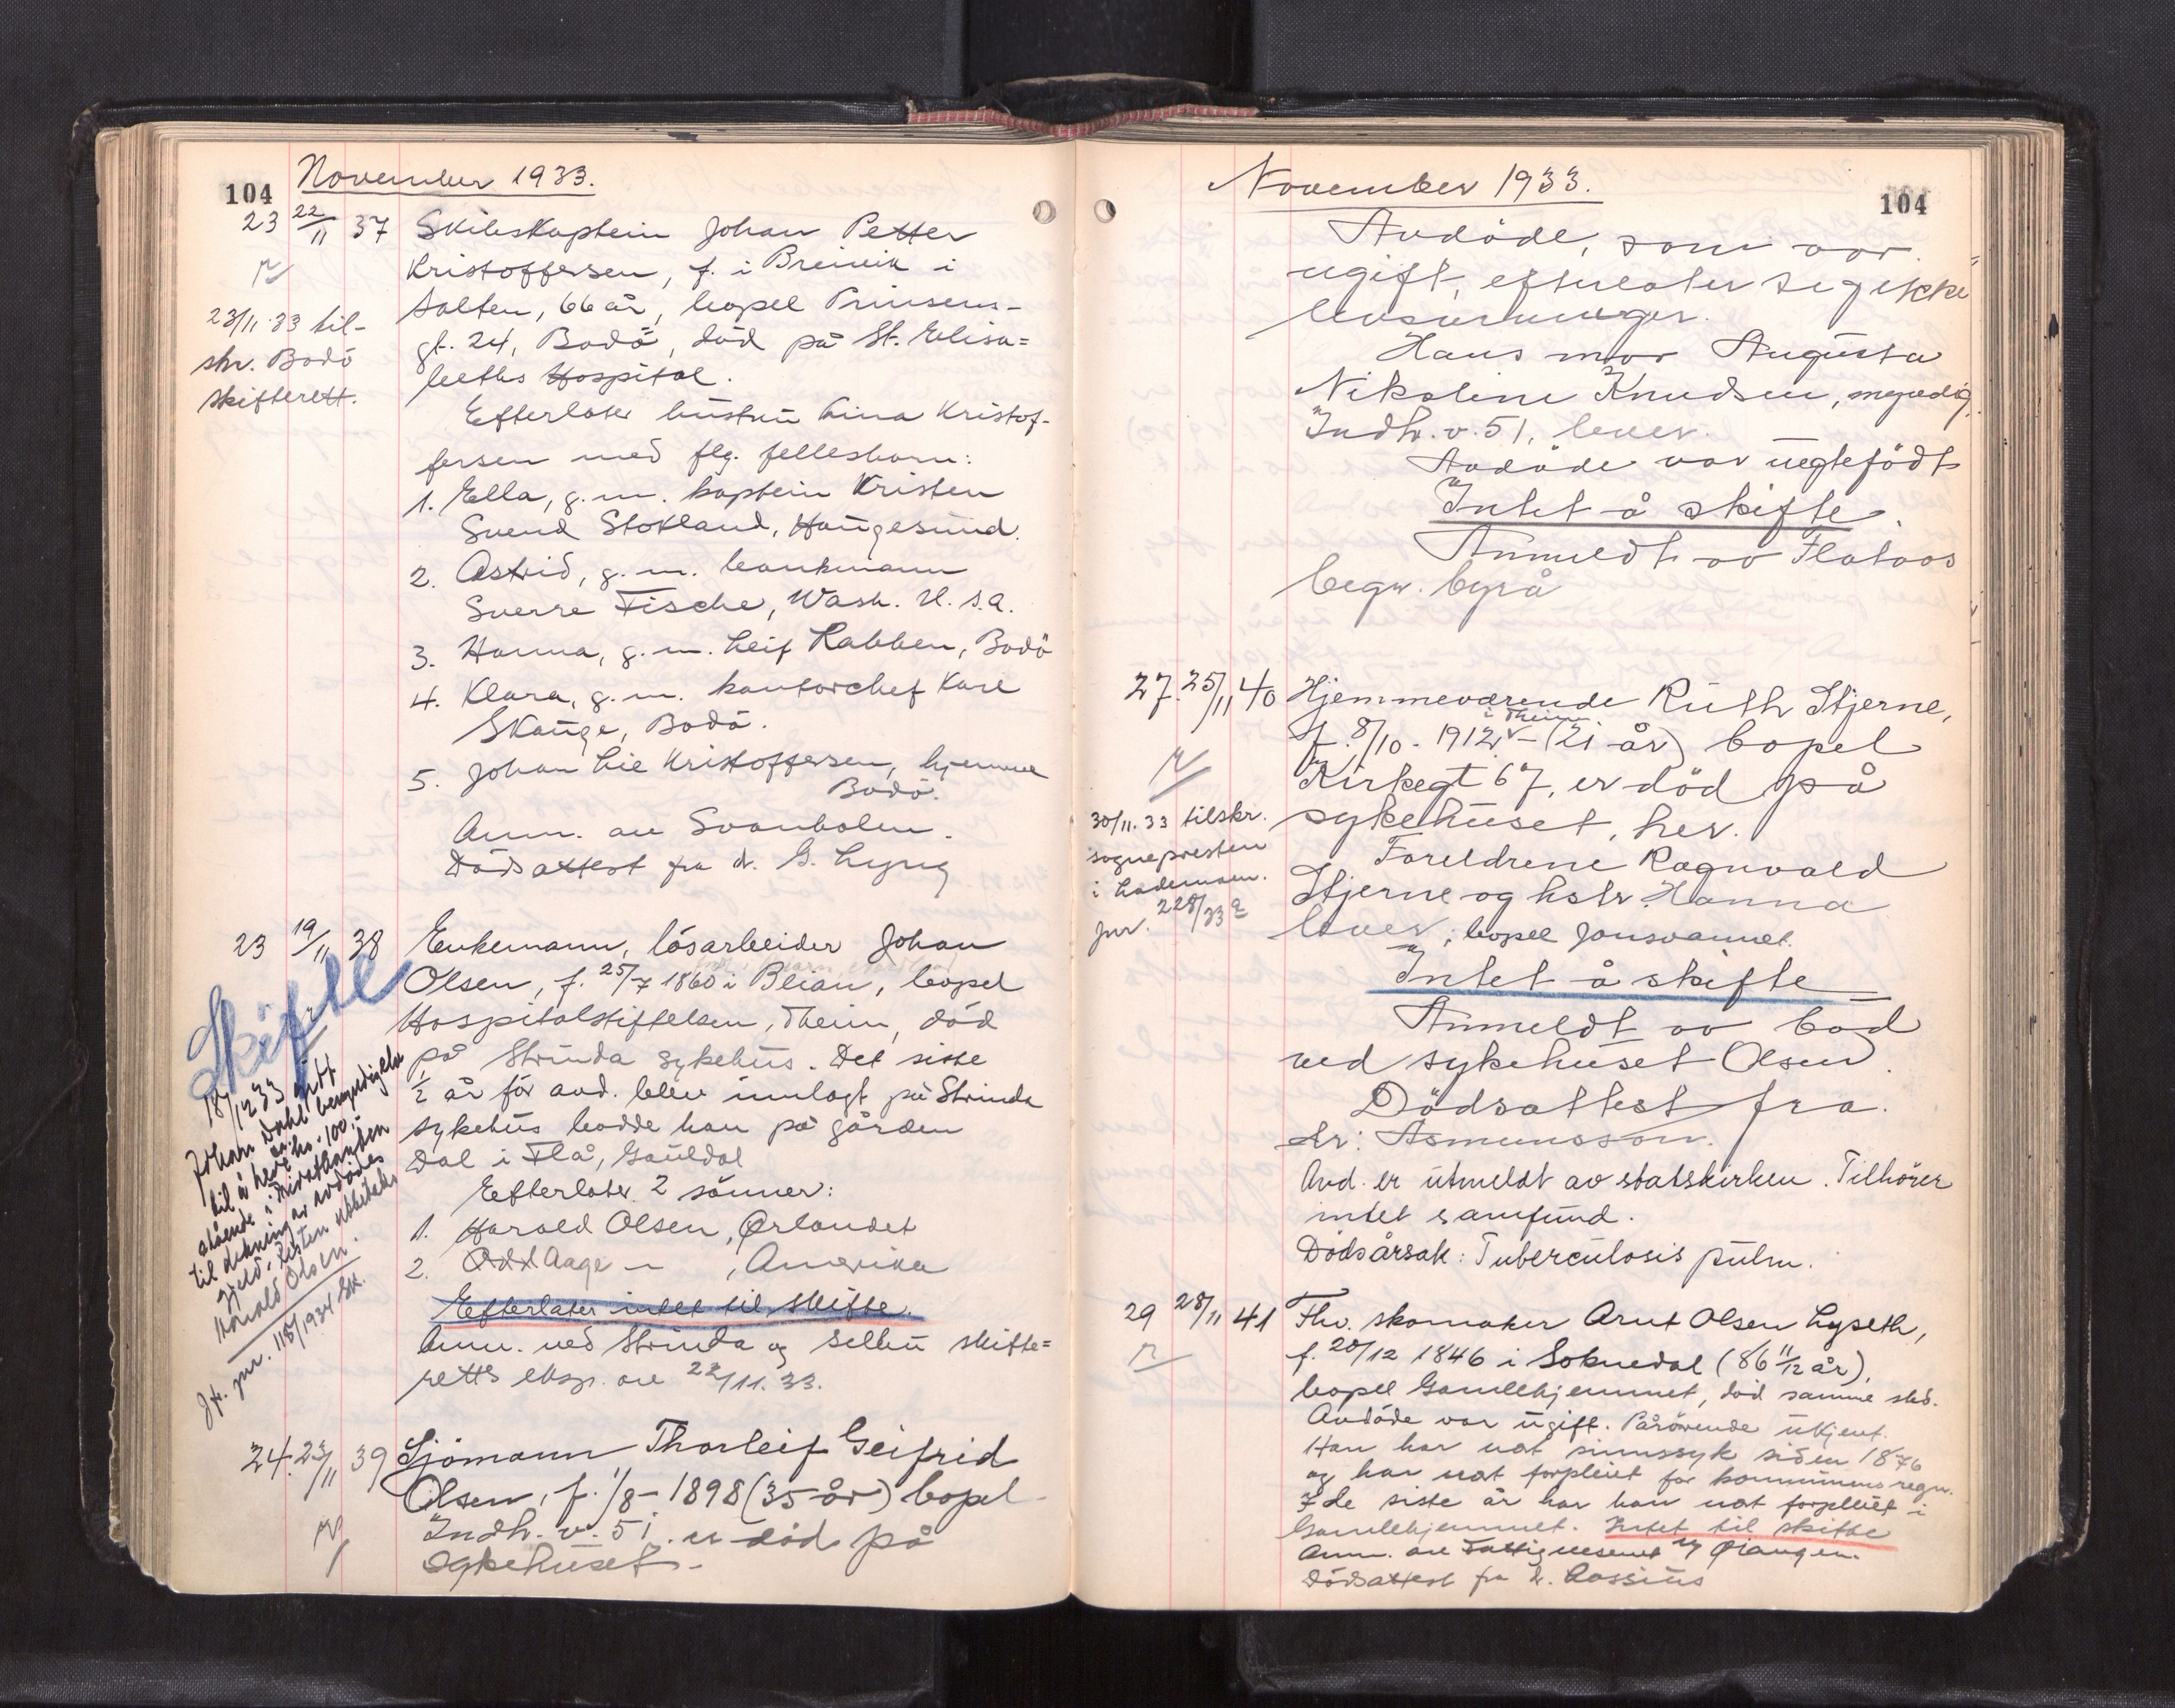 104
November 1933.
23 22/11 37 Skibskaptein Johan Petter
Kristoffersen, f. i Breivik i
Salten, 66 år, bopel Prinsens-
gt. 24, Bodö, död på St. Elisa=
beths Hospital.
23/11 33 til-
skr. Bodö
skifterett.
Efterlater hustru Lina Kristof-
fersen med flg. fellesbarn:
1. Ella, g.m. kaptein Kristen
Svend Stokland, Haugesund.
2. Astrid, g.m. bankmann
Sverre Fische, Wash. U.S.A.
3. Hanna, g.m. Leif Rabben, Bodö
4. Klara, g.m. kontorchef Kare
Skauge, Bodö.
5. Johan Lie Kristoffersen, hjemme
Bodö.
Anm. av Svanholm.
Dödsattest fra d. G. Lyng
23 19/11 38 Enkemann, lösarbeider Johan
Olsen, f. 25/7 1860 i Bleian, bopel
Hospitalstiftelsen, Theim, död
på Strinda sykehus. Det siste
1/2 år för avd. blev innlagt på Strinda
sykehus bodde han på gården
Dal i Flå, Gauldal
Efterlater 2 sönner:
1. Harald Olsen, Ørlandet
2. Odd Aage — , Amerika
Efterlater intet til skifte.
Anm. ved Strinda og Selbu skifte=
retts eksp. av 22/11. 33.
Skifte
18/12 33 gitt
Johan Dahl bemyndigelse
til å heve kr. 100.-
stående i
til dekning av avdödes
gjeld. Resten utbetales
Harald Olsen.
Jfr. jnr. 118/1934 Sk.
24. 23/11 39 Sjömann Thorleif Geifrid
Olsen, f. 1/8 - 1898 (35 år) bopel
Indh. v. 51. er död på
sykehuset -
November 1933.
104
Avdöde, som var
ugift, efterlater sig ikke
livsarvinger.
Hans mor Augusta
Nikoline Knudsen, myndig,
Indh. v. 51, lever.
Avdöde var uegtefödt
Intet å skifte.
Anmeldt av Flataas
begr. byrå
27. 25/11 40 Hjemmeværende Ruth Stjerne,
f. 8/10 - 1912 i Theim - (21 år) bopel
Kirkegt 67, er död på
sykehuset, her.
30/11. 33 tilskr.
sognepresten
i Lademoen.
jnr. 228/33 a
Foreldrene Ragnvald
Stjerne og hstr. Hanna
lever, bopel Jonsvannet.
Intet å skifte
Anmeldt av bud
ved sykehuset Olsen.
Dödsattest fra
dr: Asmunsson.
Avd. er utmeldt av statskirken. Tilhörer
intet samfund.
Dödsårsak: Tuberculosis pulm.
29 28/11 41 Fhv. skomaker Arnt Olsen Lyseth,
f. 20/12 1846 i Soknedal (86 11/12 år),
bopel Gamlehjemmet, död samme sted.
Avdöde var ugift. Pårörende ukjent.
Han har vært sinnssyk siden 1876
og har vært forpleiet for kommunens regn.
I de siste år har han vært forpleiet i
Gamlehjemmet. Intet til skifte
Anm. av Fattigvesenet v/ Øiangen.
Dödsattest fra d. Rossius